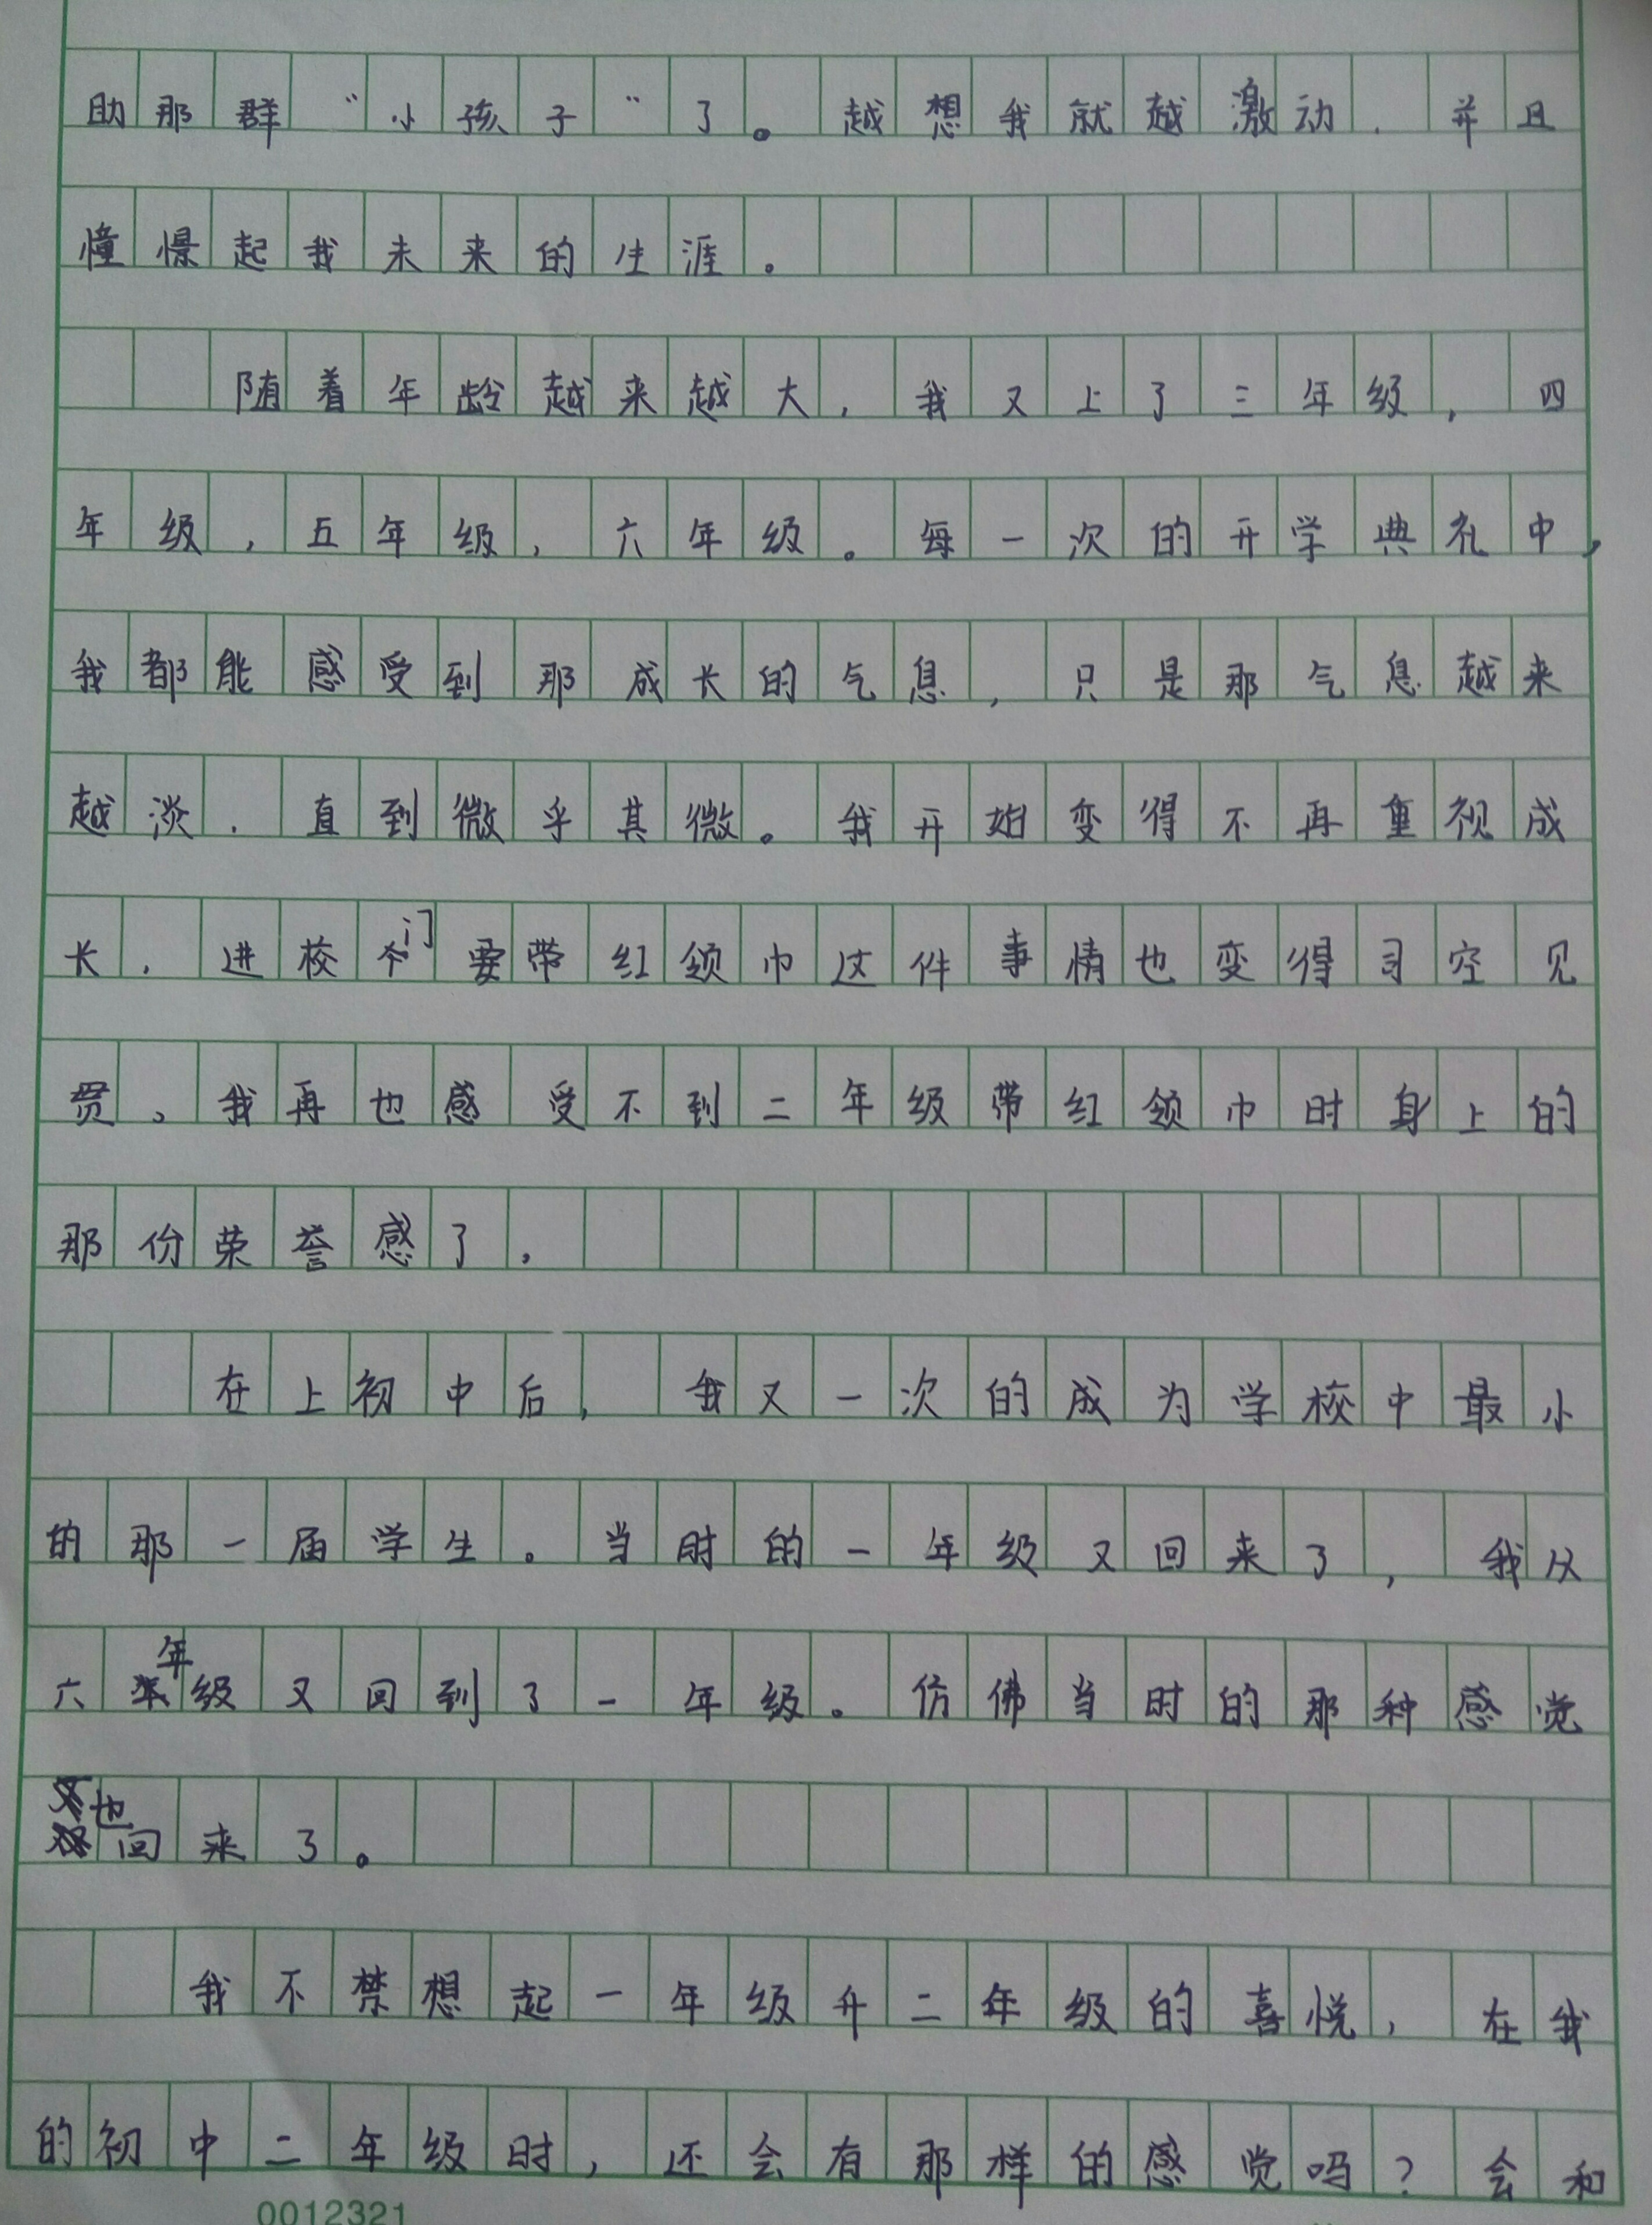 助那群“小孩子”了。越想我就越激动，并且
憧憬起我未来的生涯。
随着年龄越来越大，我又上了三年级，四
年级，五年级，六年级。每一次的开学典礼中，
我都能感受到那成长的气息，只是那气息越来
越淡，直到微乎其微。我开始变得不再重视成
长，进校门要带红领巾这件事情也变得司空见
贯。我再也感受不到二年级带红领巾时身上的
那份荣誉感了，
在上初中后，我又一次的成为学校中最小
的那一届学生。当时的一年级又回来了，我从
六年级又回到了一年级。仿佛当时的那种感觉
也回来了。
我不禁想起一年级升二年级的喜悦，在我
的初中二年级时，还会有那样的感觉吗？会和
0012321